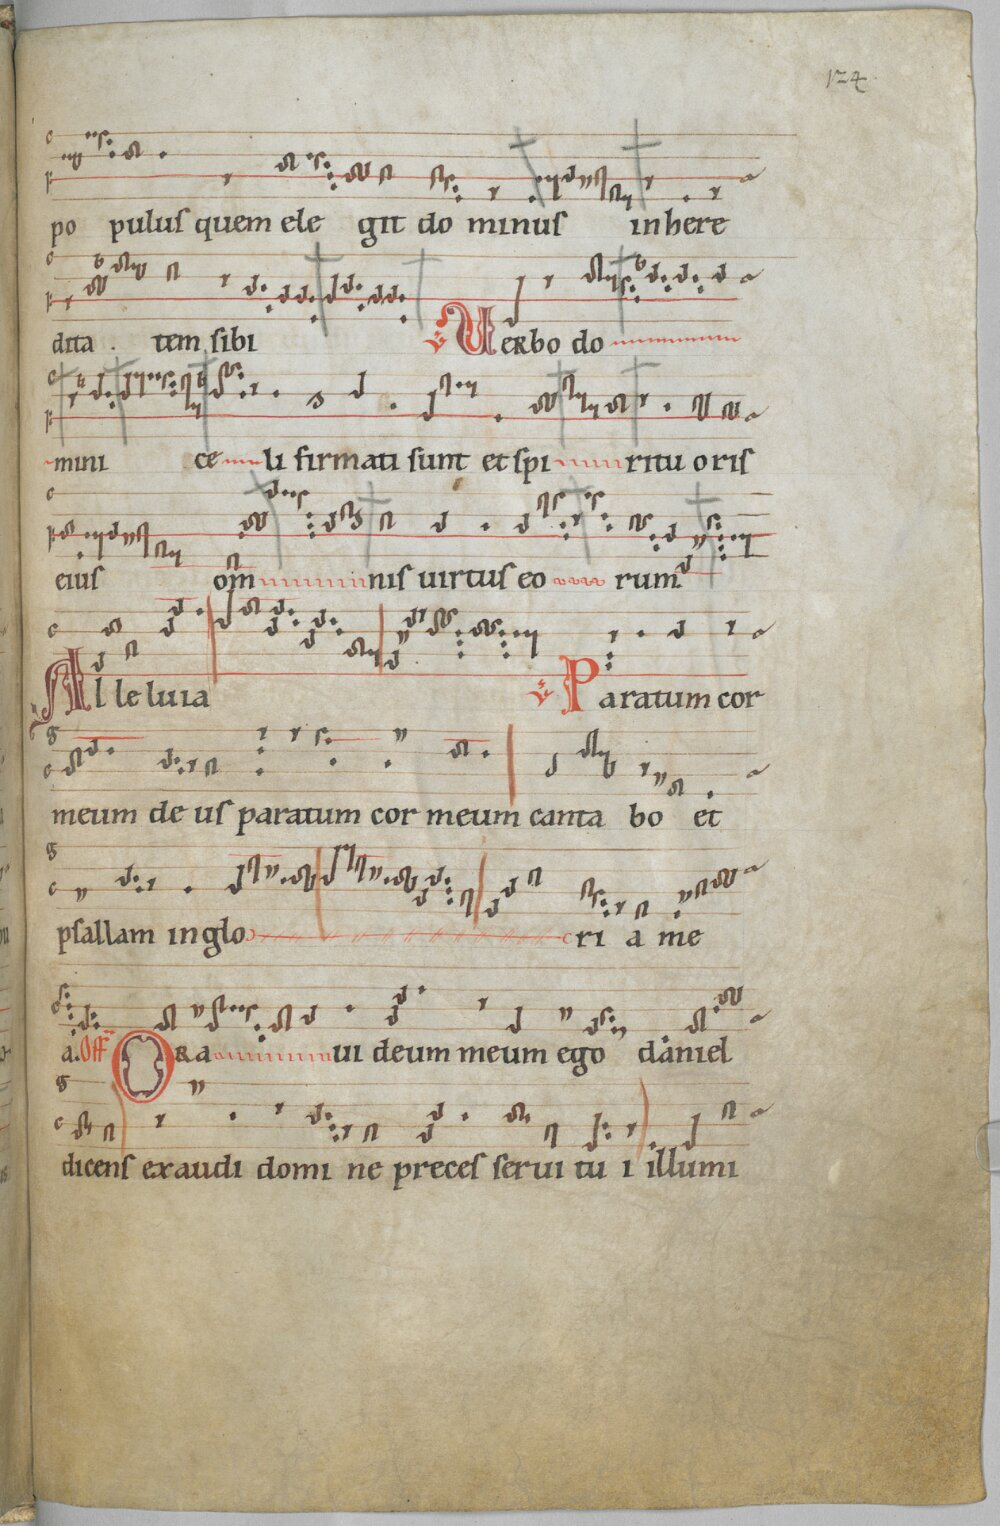 124
po pulus quem ele git do minus in here
dita . tem sibi ℣ Uerbo do
mini ce li firmati sunt et spi ritu oris
eius om̅ nis uirtus eo rum
Al le luia ℣ Paratum cor
meum de us paratum cor meum canta bo et
psallam in glo ri a me
a. Off Ora ui deum meum ego daniel
dicens exaudi domi ne preces serui tu i illumi